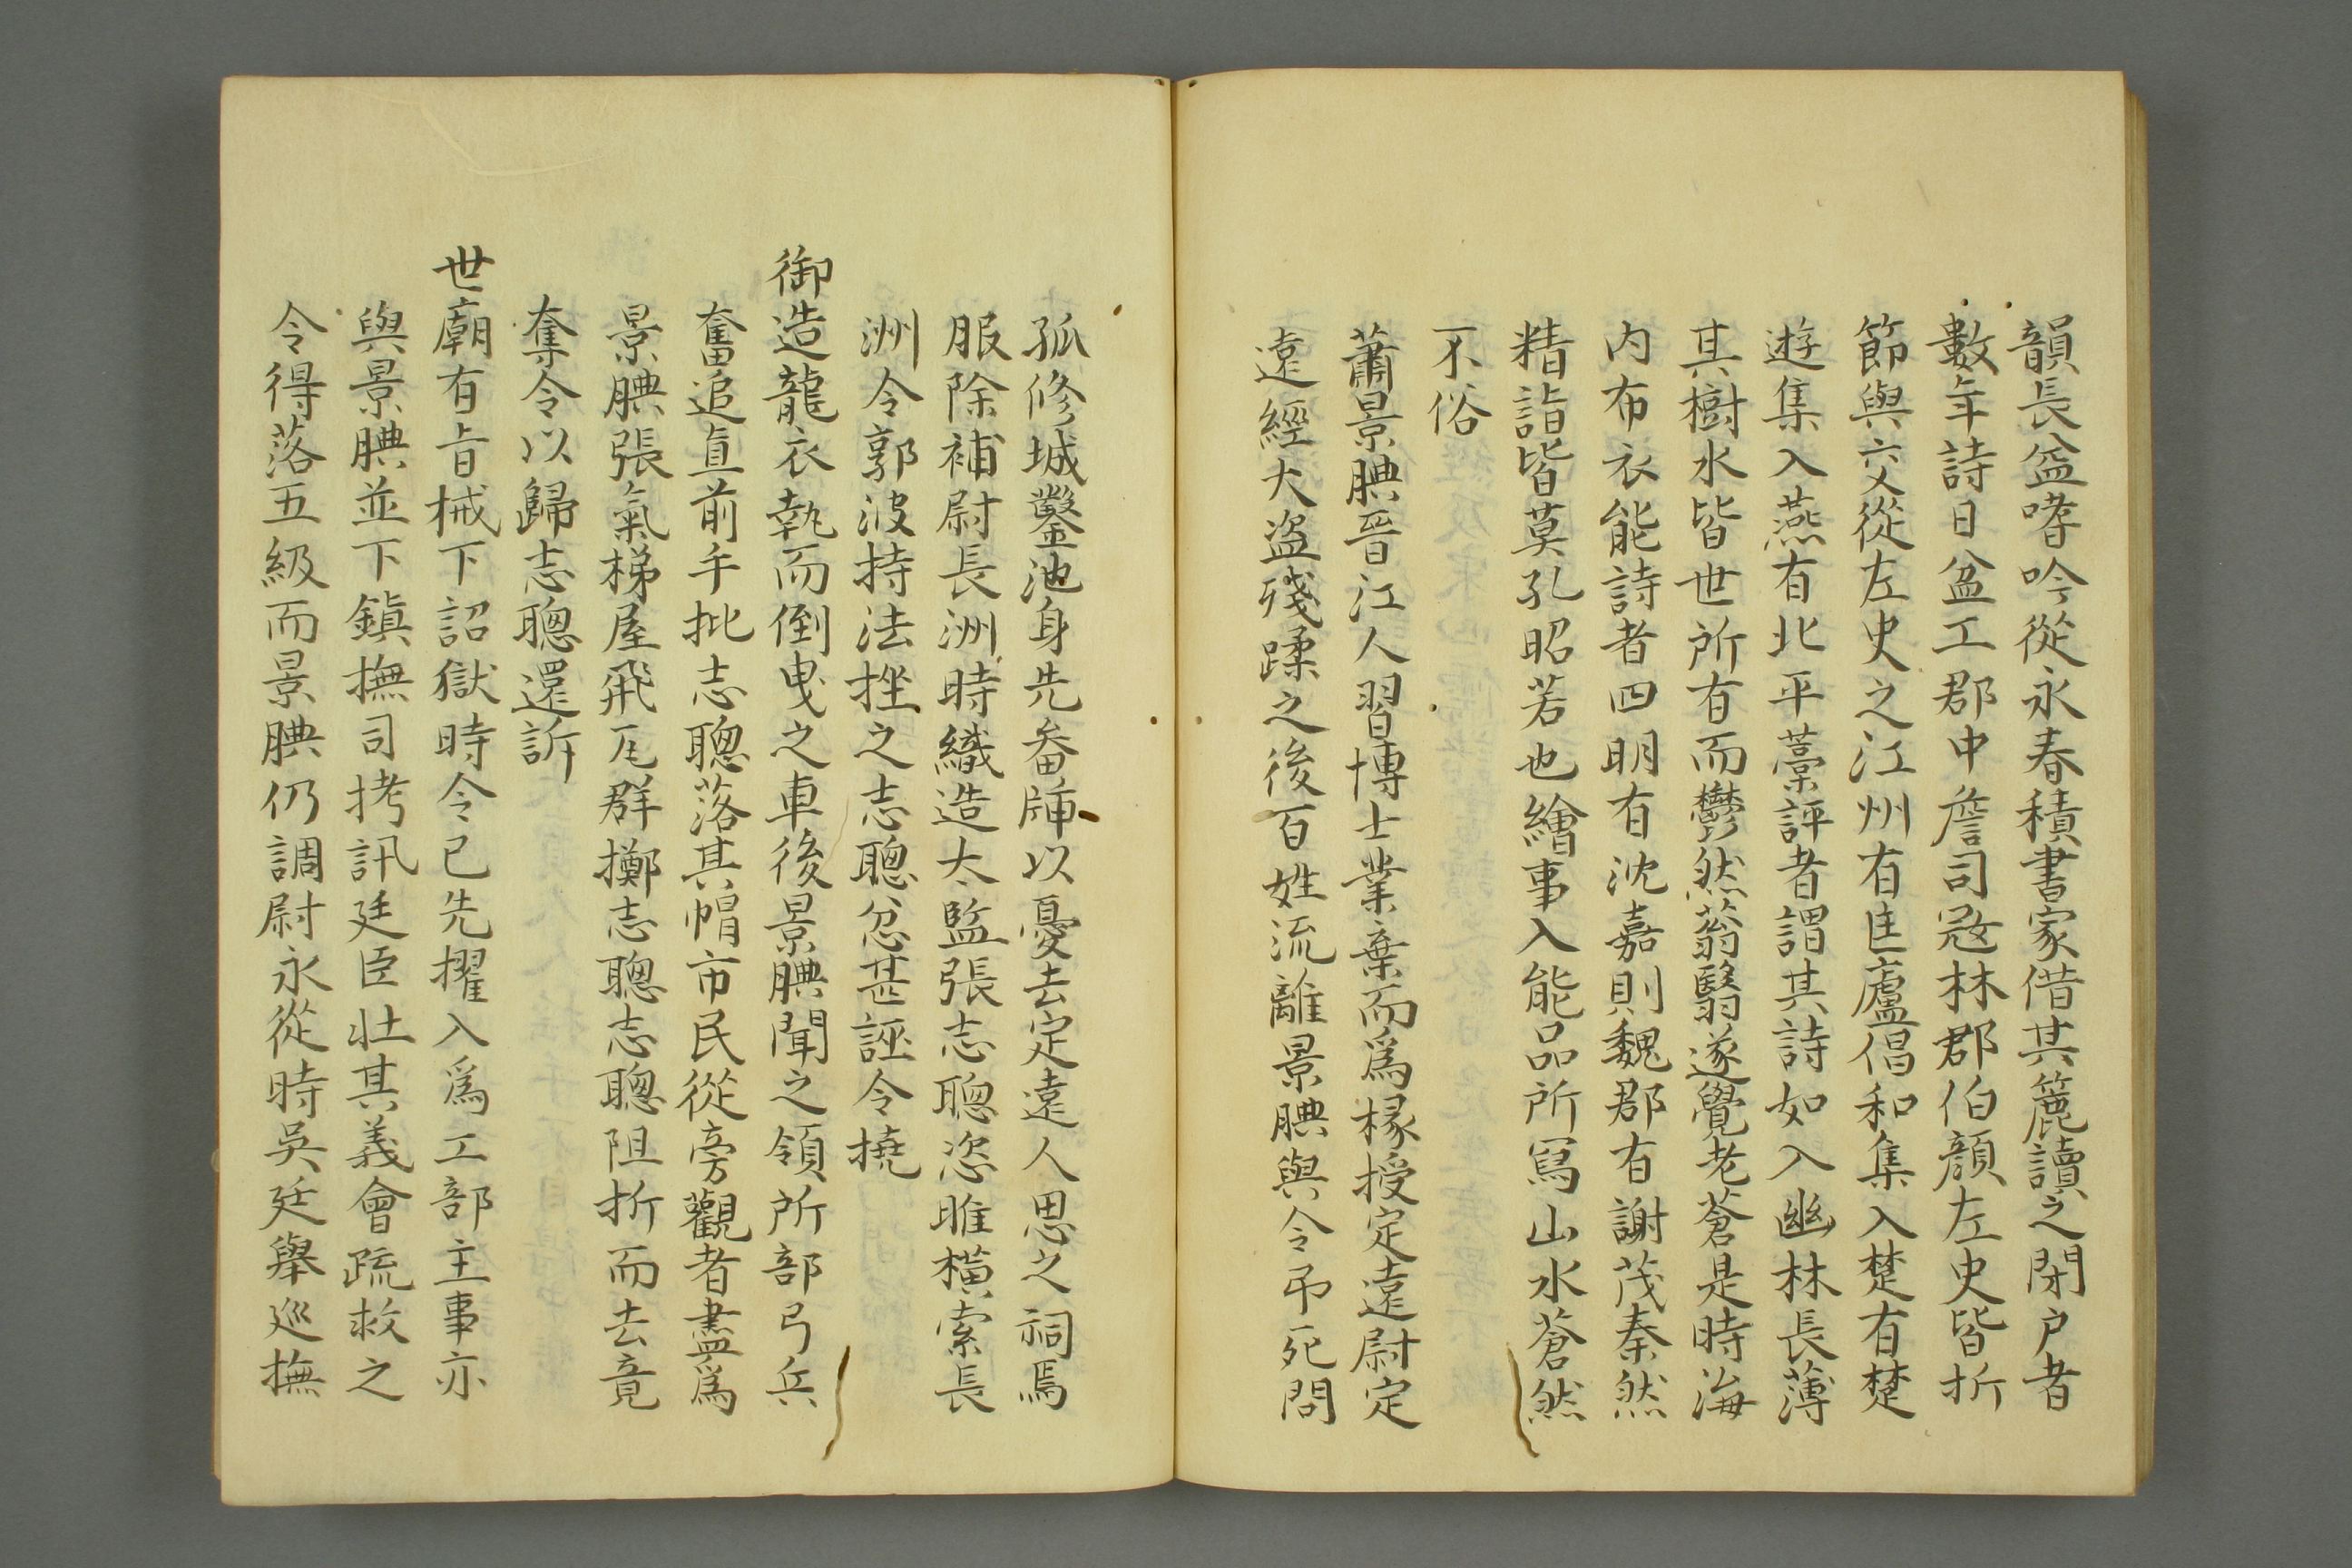 韻長益嗜吟從永春積書家借其簏讀之閉户者
數年詩日益工郡中詹司寇林郡伯顏左史皆折
節與交從左史之江州有匡廬倡和集入楚有楚
遊集入燕有北平藁評者謂其詩如入幽林長薄
其樹水皆世所有而鬱然蓊翳遂覺老蒼是時海
内布衣能詩者四明有沈嘉則魏郡有謝茂秦然
精詣皆莫孔昭若也繪事入能品所寫山水蒼然
不俗
蕭景腆晉江人習博士業棄而為掾授定遠尉定
遠經大盜殘蹂之後百姓流離景腆與令弔死問
孤修城鑿池身先畚牐以憂去定遠人思之祠焉
服除補尉長洲時織造太監張志聰恣睢橫索長
洲令郭波持法挫之志聰忿甚誣令撓
御造龍衣執而倒曳之車後景腆聞之領所部弓兵
奮追直前手批志聰落其帽市民從旁觀者盡為
景腆張氣梯屋飛瓦群擲志聰志聰阻折而去竟
奪令以歸志聰還訴
世廟有旨械下詔獄時令已先擢入為工部主事亦
與景腆並下鎮撫司拷訊廷臣壯其義會疏救之
令得落五級而景腆仍調尉永從時吳廷舉巡撫